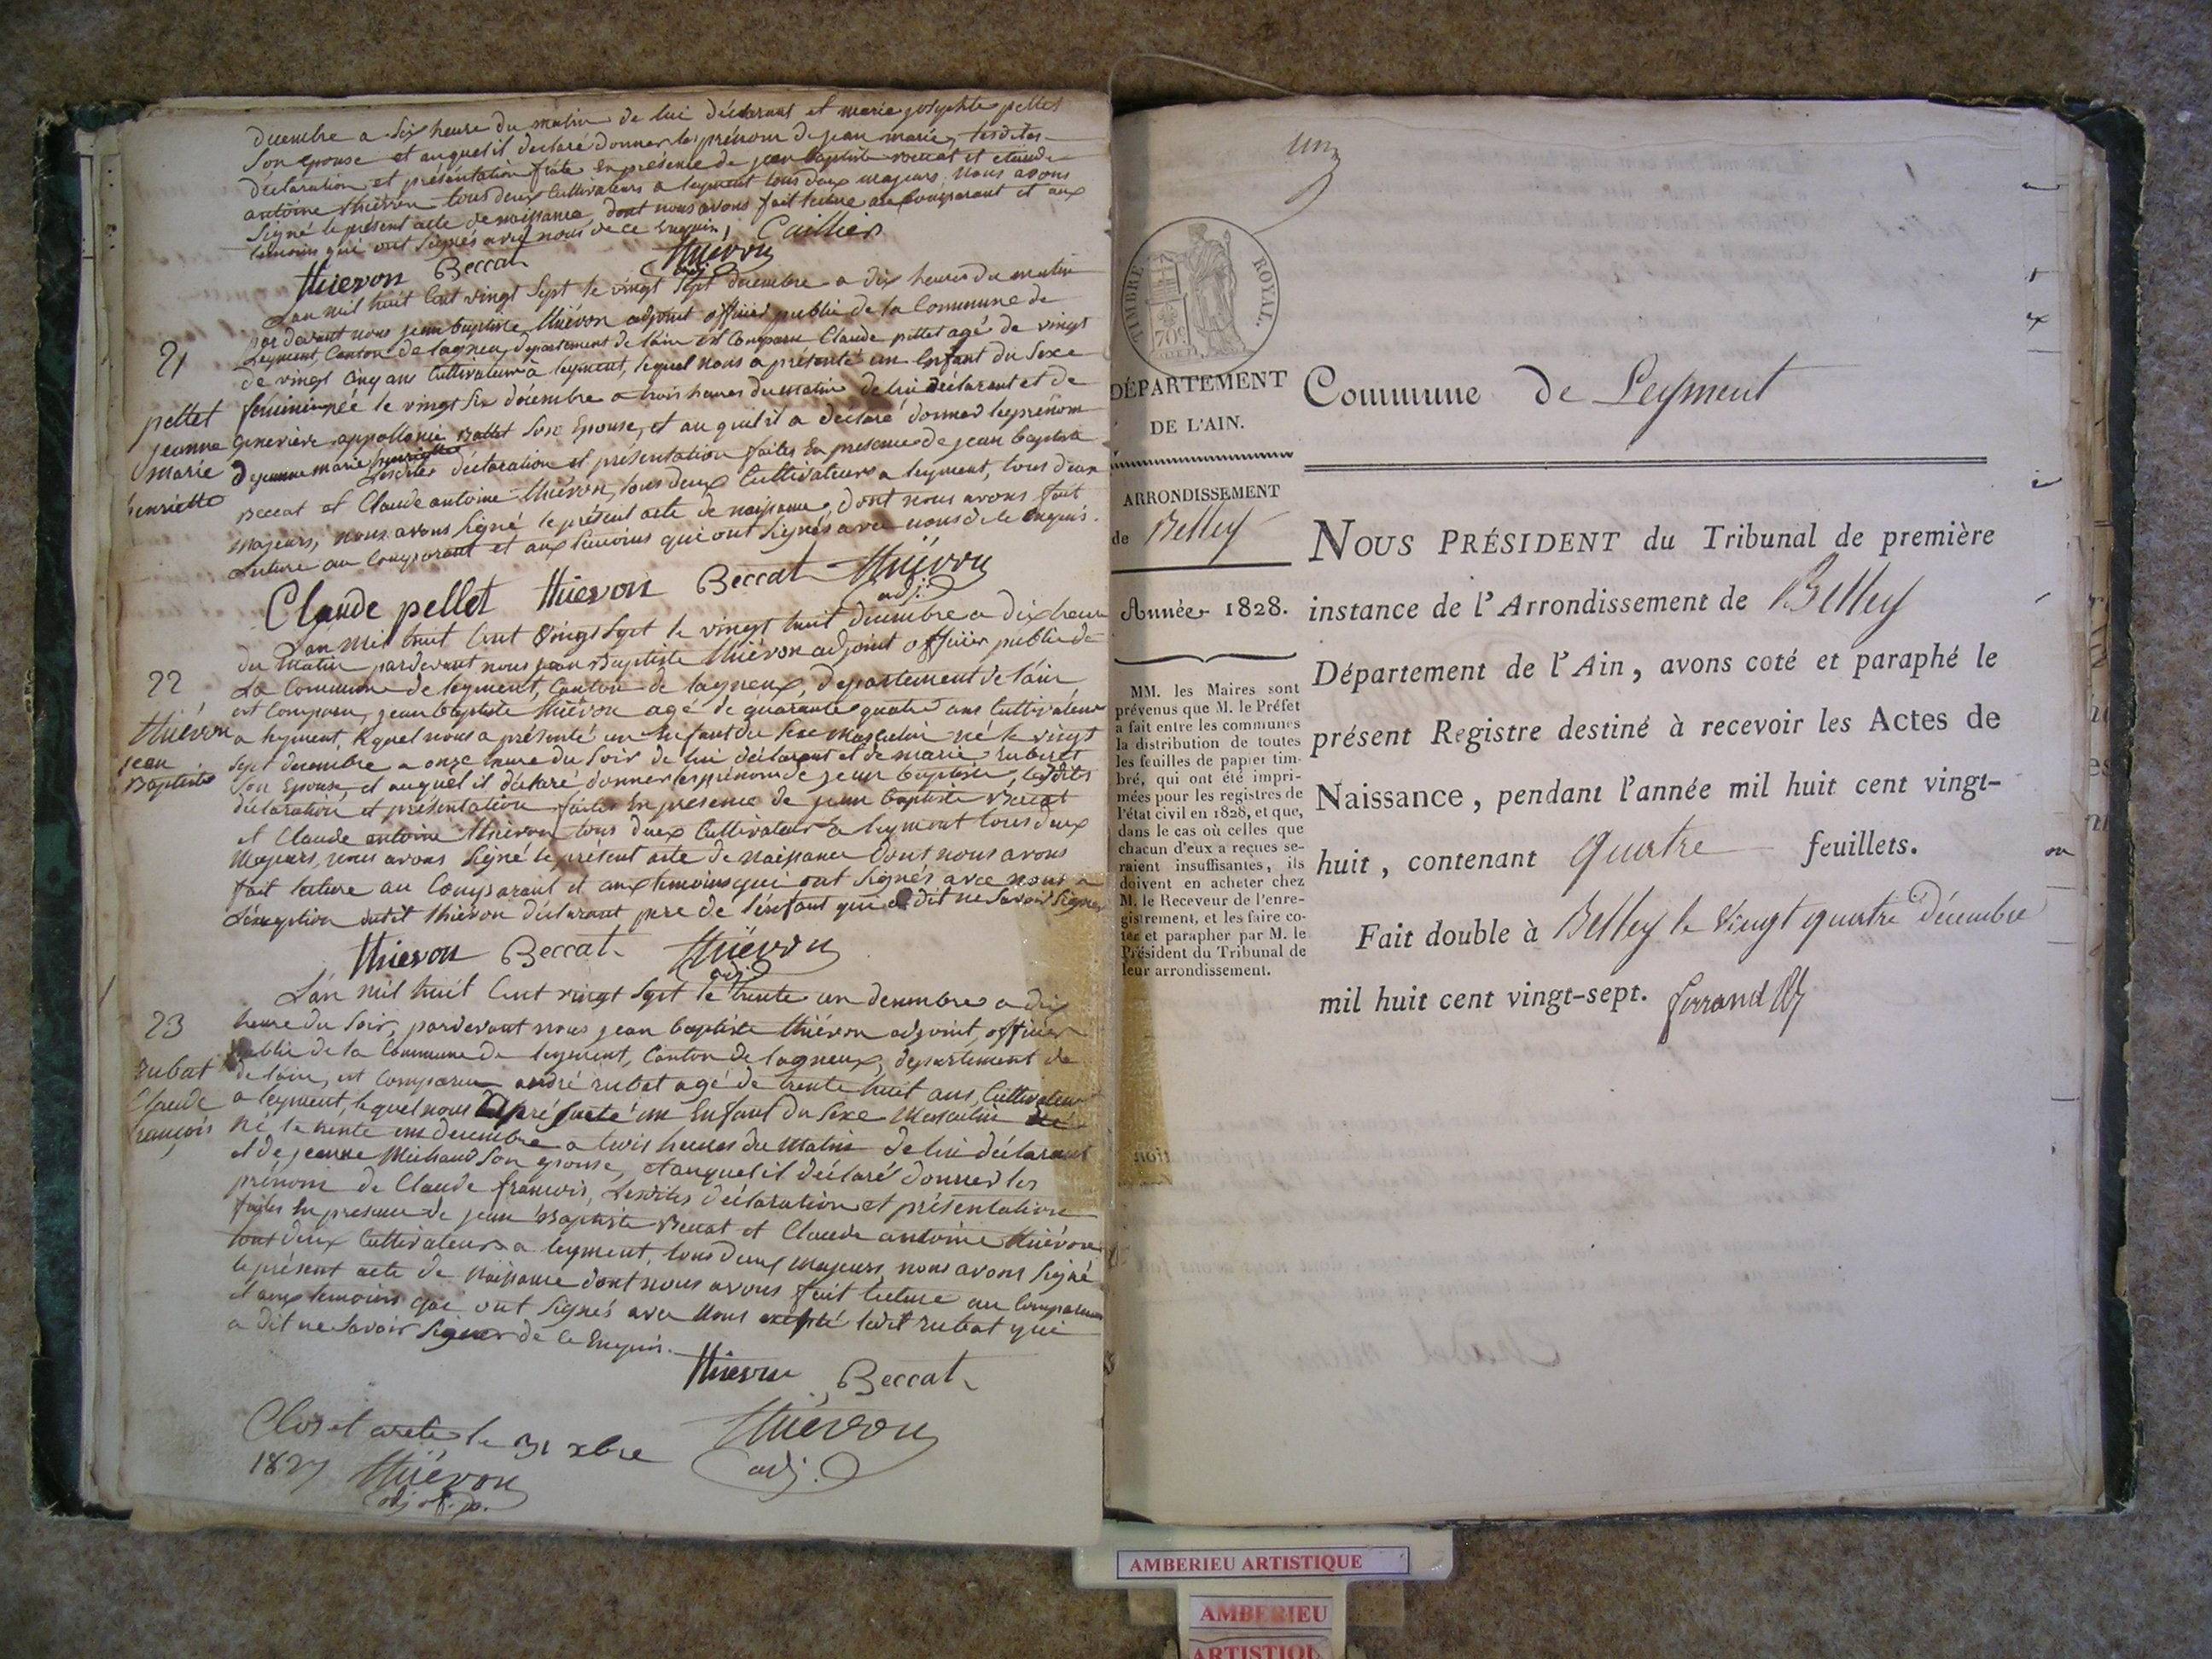 décembre a six heure du matin de lui déclarant et marie josephte pellet
Son épouse et auquel il déclaré donner les prénom de jean marie, lesdites
déclaration et présentation faite en présence de jean baptiste beccat et claude
antoine thiévon tous deux cultivateurs a leyment tous deux majeurs. Nous avons
Signé le présent acte de naissance, dont nous avons fait lecture au comparant et aux
temoins qui ont Signés avec nous de ce Enquis, Caillier
Thievon Beccat Thiévon
adj.
L'an mil huit Cent vingt Sept le vingt Sept decembre a dix heures du matin
par devant nous jean baptiste thiévon adjoint officier public de la Commune de
21
Leyment, Canton de lagneu, departement de l'ain est Comparu Claude pellet agé de vingt
de vingt Cinq ans Cultivateur a leyment, lequel nous a présenté un Enfant du Sexe
feminin née le vingt Six décembre a trois heures du matin de lui déclarant et de
pellet
jeanne
marie
henriette
genevieve appollonie Ballet Son Epouse, et au quel il a déclaré donner le prénom
de jeanne marie henriette Lesdites déclaration et présentation faites En presence de jean baptiste
Beccat et Claude antoine thiévon, tous deux Cultivateurs a leyment, tous deux
majeurs, nous avons Signé le présent acte de naissance, dont nous avons fait
Lecture au Comparant et aux témoins qui ont Signés avec nous de ce Enquis.
Claude pellet Thievon Beccat Thiévon
adj.
L'an Mil huit Cent Vingt Sept le vingt huit decembre a dix heure
du Matin pardevant nous jean Baptiste thiévon adjoint officier public de
22
La Commune de leyment, Canton de lagneux, departement de l'ain
est Comparu, jean baptiste thiévon agé de quarante quatre ans Cultivateur
Thiévon
jean
Baptiste
a leyment, lequel nous a présenté un Enfant du Sexe Masculin né le vingt
Sept decembre a onze heure du Soir de lui déclarant et de marie
Son Epouse et auquel il déclaré donner les prénom de jean baptiste, lesdits
déclaration et présentation faites En presence de jean baptiste Beccat
et Claude antoine thiévon tous deux Cultivateur a leyment tous deux
Majeurs, nous avons Signé le présent acte de naissance Dont nous avons
fait lecture au Comparant et aux temoins qui ont Signés avec nous a
L'exception dudit thiévon déclarant pere de l'enfant qui a dit ne Savoir Signer
Thievon Beccat Thiévon
adj.
L'an mil huit Cent vingt Sept le trente un decembre a dix
heure du Soir, pardevant nous jean baptiste thiévon adjoint, officier
23
public de la Commune de leyment, Canton de lagneux, departement de
Rubat
Claude
françois
de l'ain, est Comparu andré rubat agé de trente huit ans, Cultivateur
a leyment, lequel nous a présenté un Enfant du Sexe Masculin né
né le trente un decembre a trois heures du Matin de lui déclarant
et de jeanne Michaud Son epouse, et auquel il déclaré donner les
prénom de Claude françois, Lesdites déclaration et présentation
faites En presence de jean Baptiste Beccat et Claude antoine thiévon
tout deux Cultivateurs a leyment, tous deux Majeurs nous avons Signé
le présent acte de Naissance dont nous avons fait lecture au Comparant
et aux temoins qui ont Signés avec Nous excepté ledit rubat qui
a dit ne Savoir Signer de ce Enquis.
Thievon Beccat
Thiévon
adj.
Clos et areté le 31 xbre
1827 Thiévon
adj of. p.
un
TIMBRE ROYAL.
70c
DÉPARTEMENT
DE L'AIN.
ARRONDISSEMENT
de Belley
Année 1828.
MM. les Maires sont
prévenus que M. le Préfet
a fait entre les communes
la distribution de toutes
les feuilles de papier tim-
bré, qui ont été impri-
mées pour les registres de
l'état civil en 1828, et que,
dans le cas où celles que
chacun d'eux a reçues se-
raient insuffisantes, ils
doivent en acheter chez
M. le Receveur de l'enre-
gistrement, et les faire co-
ter et parapher par M. le
Président du Tribunal de
leur arrondissement.
Commune de Leyment
NOUS PRÉSIDENT du Tribunal de première
instance de l'Arrondissement de Belley
Département de l'Ain, avons coté et paraphé le
présent Registre destiné à recevoir les Actes de
Naissance, pendant l'année mil huit cent vingt-
huit, contenant quatre feuillets.
Fait double à Belley le vingt quatre Décembre
mil huit cent vingt-sept. ferrand
AMBERIEU ARTISTIQUE
AMBERIEU
ARTISTIQU